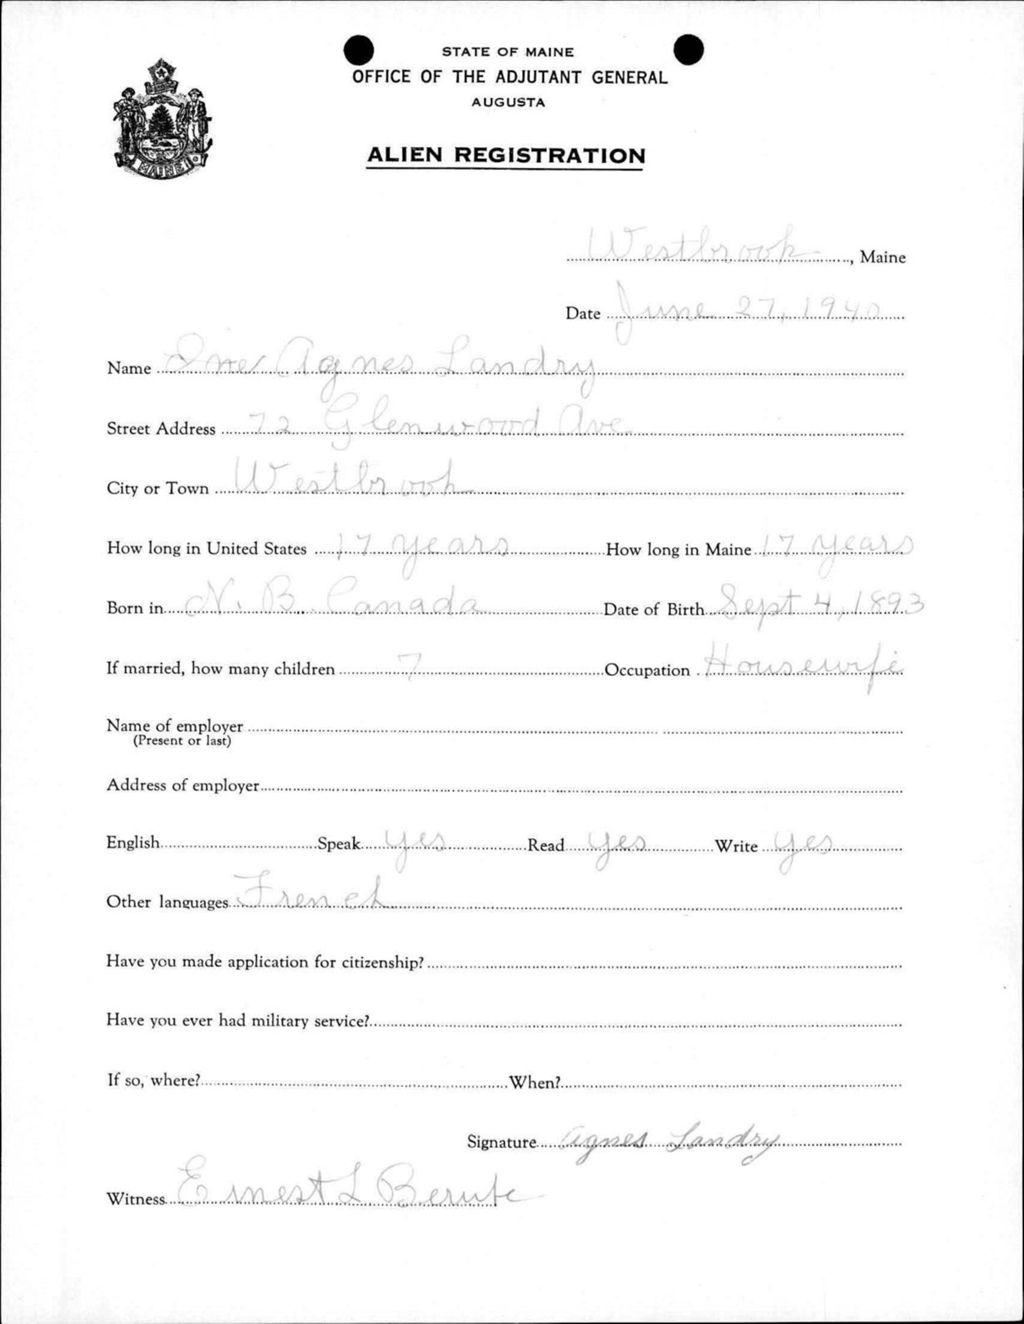 STATE OF MAINE
OFFICE OF THE ADJUTANT GENERAL
AUGUSTA
ALIEN REGISTRATION
MAINE
Westbrook, Maine
Date June 27, 1940
Name Agnes Landry
Street Address 72 Glenwood Ave
City or Town Westbrook
How long in United States 17 years How long in Maine 17 years
Born in N. B. Canada Date of Birth Sept 4, 1893
If married, how many children 7 Occupation Housewife
Name of employer
(Present or last)
Address of employer
English Speak yes Read yes Write yes
Other languages French
Have you made application for citizenship?
Have you ever had military service?
If so, where? When?
Signature Agnes Landry
Witness Ernest L